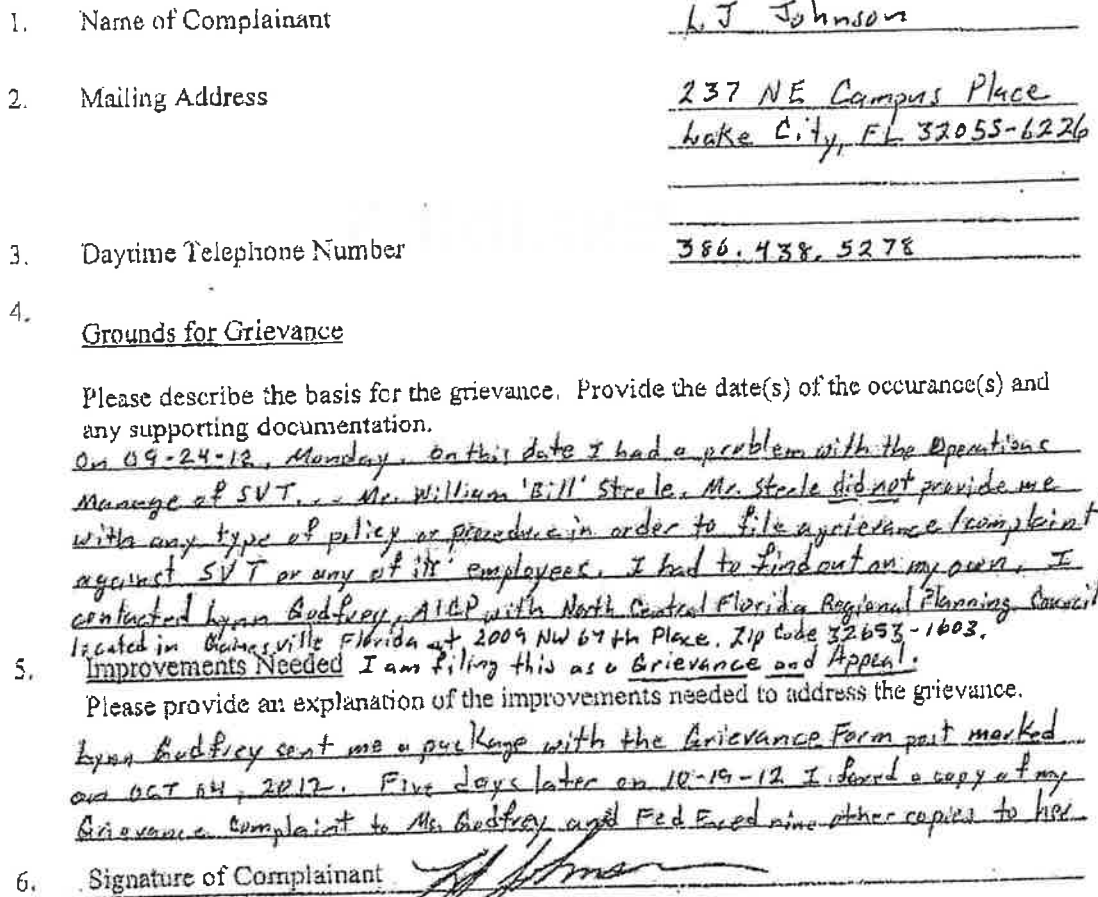 1. Name of Complainant L J Johnson
2. Mailing Address 237 NE Campus Place
Lake City, FL 32055-6226
3. Daytime Telephone Number 386.438.5278
4.
Grounds for Grievance
Please describe the basis for the grievance. Provide the date(s) of the occurance(s) and
any supporting documentation.
On 09-24-12, Monday. On this date I had a problem with the Operations
Manage of SVT... Mr. William 'Bill' Steele. Mr. Steele did not provide me
with any type of policy or procedure in order to file a grievance/complaint
against SVT or any of its' employees. I had to find out on my own. I
contacted Lynn Godfrey, AICP with North Central Florida Regional Planning Council
located in Gainesville Florida at 2009 NW 67th Place. Zip Code 32653-1603.
5. Improvements Needed I am filing this as a Grievance and Appeal.
Please provide an explanation of the improvements needed to address the grievance.
Lynn Godfrey sent me a package with the Grievance Form post marked
on OCT 04, 2012. Five days later on 10-19-12 I faxed a copy of my
Grievance Complaint to Ms. Godfrey and Fed Exed nine other copies to her
6. Signature of Complainant